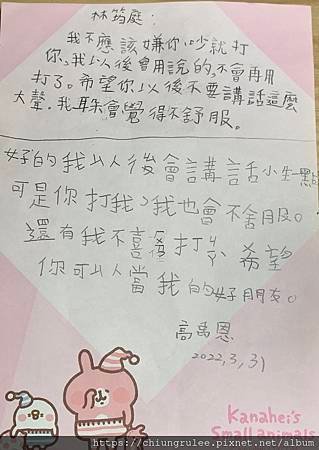 林筠庭:
我不應該嫌你吵就打
你,我以後會用說的,不會再用
打了。希望你以後不要講話這麼
大聲.我耳朵會覺得不舒服。
好的我以後會講話小生一點
可是你打我,我也會不舍服。
還有我不喜歡打架、希望
你可以當我的好朋友。
高禹恩
2022,3,31
Kanahei's
Small animals
https://chiungrulee.pixnet.net/album